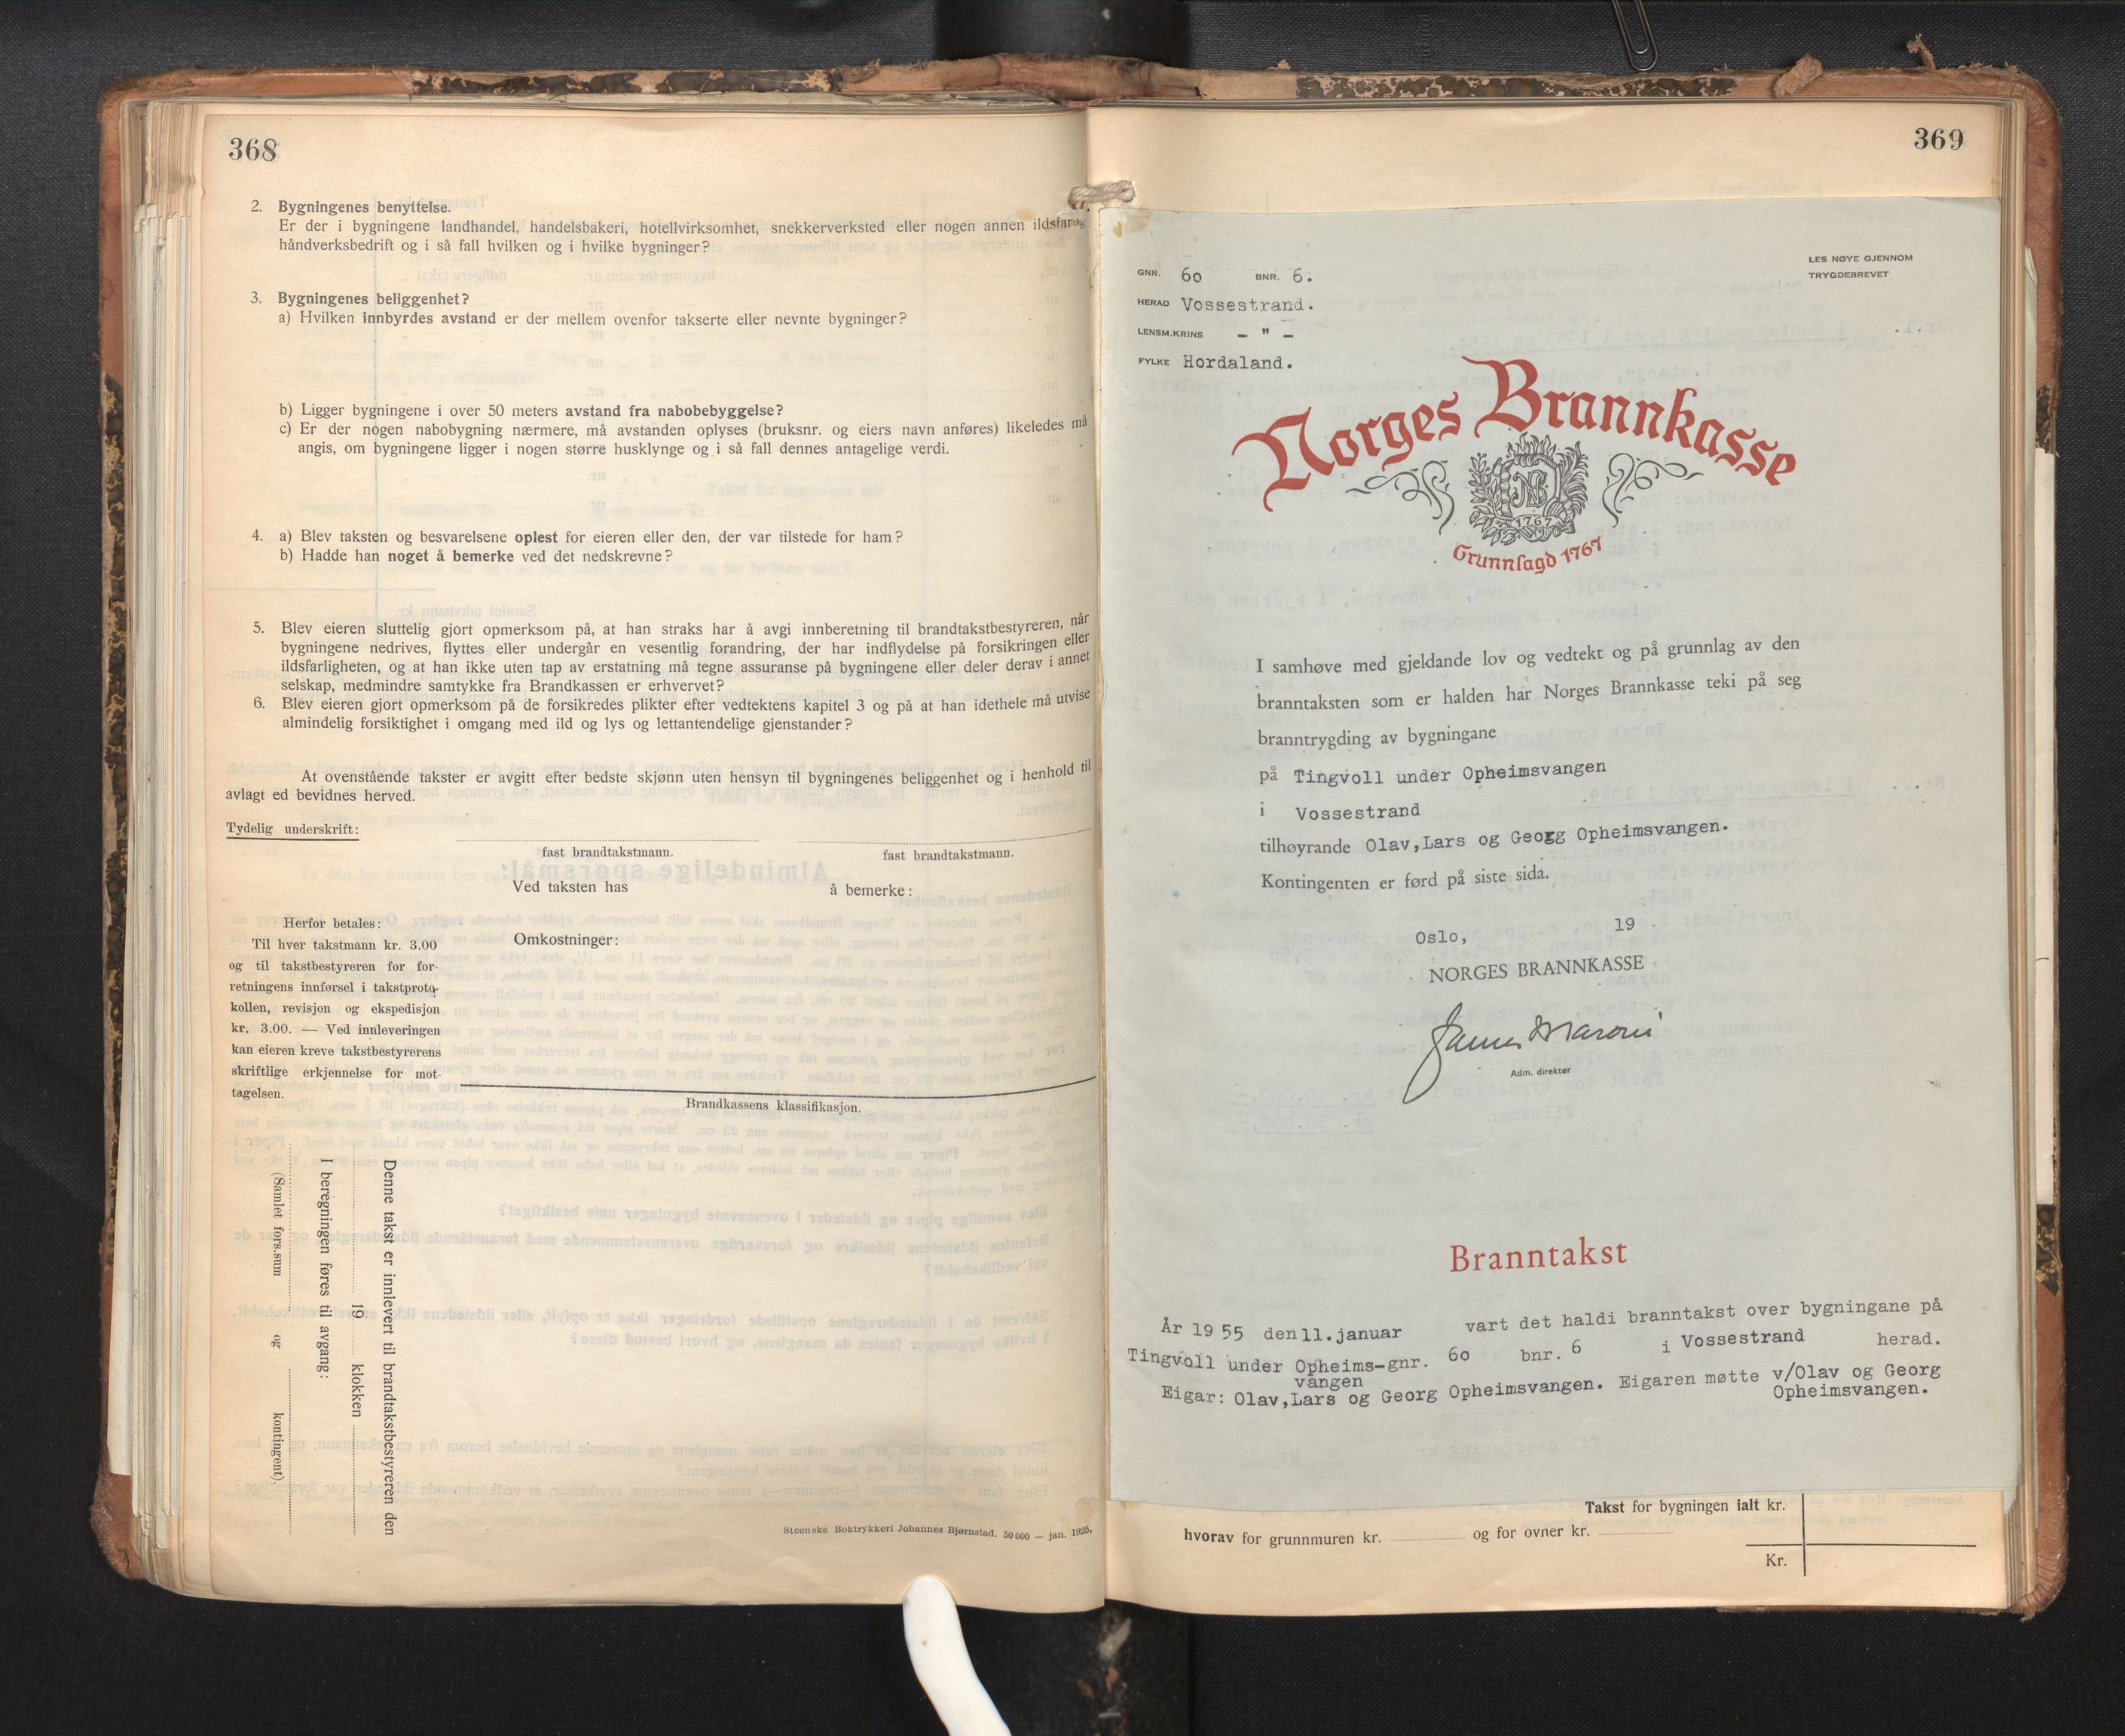 368
2. Bygningenes benyttelse.
Er der i bygningene landhandel, handelsbakeri, hotellvirksomhet, snekkerverksted eller nogen annen ildsfarlig
håndverksbedrift og i så fall hvilken og i hvilke bygninger?
3. Bygningenes beliggenhet?
a) Hvilken innbyrdes avstand er der mellem ovenfor takserte eller nevnte bygninger?
b) Ligger bygningene i over 50 meters avstand fra nabobebyggelse?
c) Er der nogen nabobygning nærmere, må avstanden oplyses (bruksnr. og eiers navn anføres) likeledes må
angis, om bygningene ligger i nogen større husklynge og i så fall dennes antagelige verdi.
4. a) Blev taksten og besvarelsene oplest for eieren eller den, der var tilstede for ham?
b) Hadde han noget å bemerke ved det nedskrevne?
5. Blev eieren sluttelig gjort opmerksom på, at han straks har å avgi innberetning til brandtakstbestyreren, når
bygningene nedrives, flyttes eller undergår en vesentlig forandring, der har indflydelse på forsikringen eller
ildsfarligheten, og at han ikke uten tap av erstatning må tegne assuranse på bygningene eller deler derav i annet
selskap, medmindre samtykke fra Brandkassen er erhvervet?
6. Blev eieren gjort opmerksom på de forsikredes plikter efter vedtektens kapitel 3 og på at han idethele må utvise
almindelig forsiktighet i omgang med ild og lys og lettantendelige gjenstander?
At ovenstående takster er avgitt efter bedste skjønn uten hensyn til bygningenes beliggenhet og i henhold til
avlagt ed bevidnes herved.
Tydelig underskrift:
fast brandtakstmann. fast brandtakstmann.
Ved taksten has å bemerke:
Herfor betales:
Til hver takstmann kr. 3.00
og til takstbestyreren for for-
retningens innførsel i takstproto-
kollen, revisjon og ekspedisjon
kr. 3.00. — Ved innleveringen
kan eieren kreve takstbestyrerens
skriftlige erkjennelse for mot-
tagelsen.
Omkostninger:
Brandkassens klassifikasjon.
Denne takst er innlevert til brandtakstbestyreren den
19 klokken
I beregningen føres til avgang:
(Samlet fors.sum og kontingent).
Steenske Boktrykkeri Johannes Bjørnstad. 50 000 — jan. 1925.
369
LES NØYE GJENNOM
TRYGDEBREVET
GNR. 60 BNR. 6.
HERAD Vossestrand.
LENSM.KRINS - " -
FYLKE Hordaland.
Norges Brannkasse
NB
1767
Grunnlagd 1767
I samhøve med gjeldande lov og vedtekt og på grunnlag av den
branntaksten som er halden har Norges Brannkasse teki på seg
branntrygding av bygningane
på Tingvoll under Opheimsvangen
i Vossestrand
tilhøyrande Olav,Lars og Georg Opheimsvangen.
Kontingenten er førd på siste sida.
Oslo, 19
NORGES BRANNKASSE
James Maroni
Adm. direktør
Branntakst
År 19 55 den 11.januar vart det haldi branntakst over bygningane på
Tingvoll under Opheims-gnr. 60 bnr. 6 i Vossestrand herad.
vangen
Eigar: Olav,Lars og Georg Opheimsvangen. Eigaren møtte v/Olav og Georg
Opheimsvangen.
Takst for bygningen ialt kr.
hvorav for grunnmuren kr. og for ovner kr.
Kr.